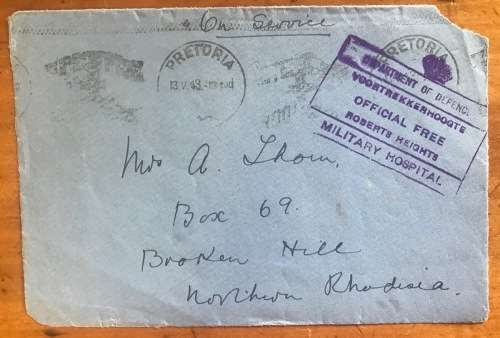 On Service
PRETORIA
13 V 43
PRETORIA
DEPARTMENT OF DEFENCE
VOORTREKKERHOOGTE
OFFICIAL FREE
ROBERTS HEIGHTS
MILITARY HOSPITAL
Mrs A. Thom,
Box 69.
Broken Hill
Northern Rhodisia.